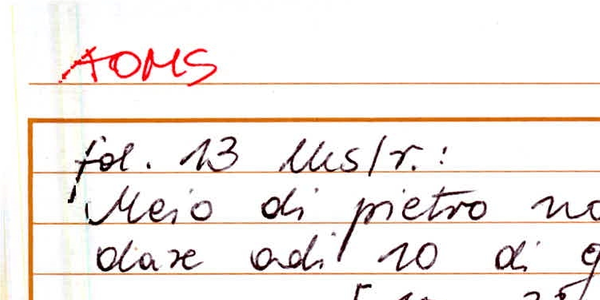 AOMS
fol. 13 Us/r.:
'Meio di pietro no
dare adi 10 di g